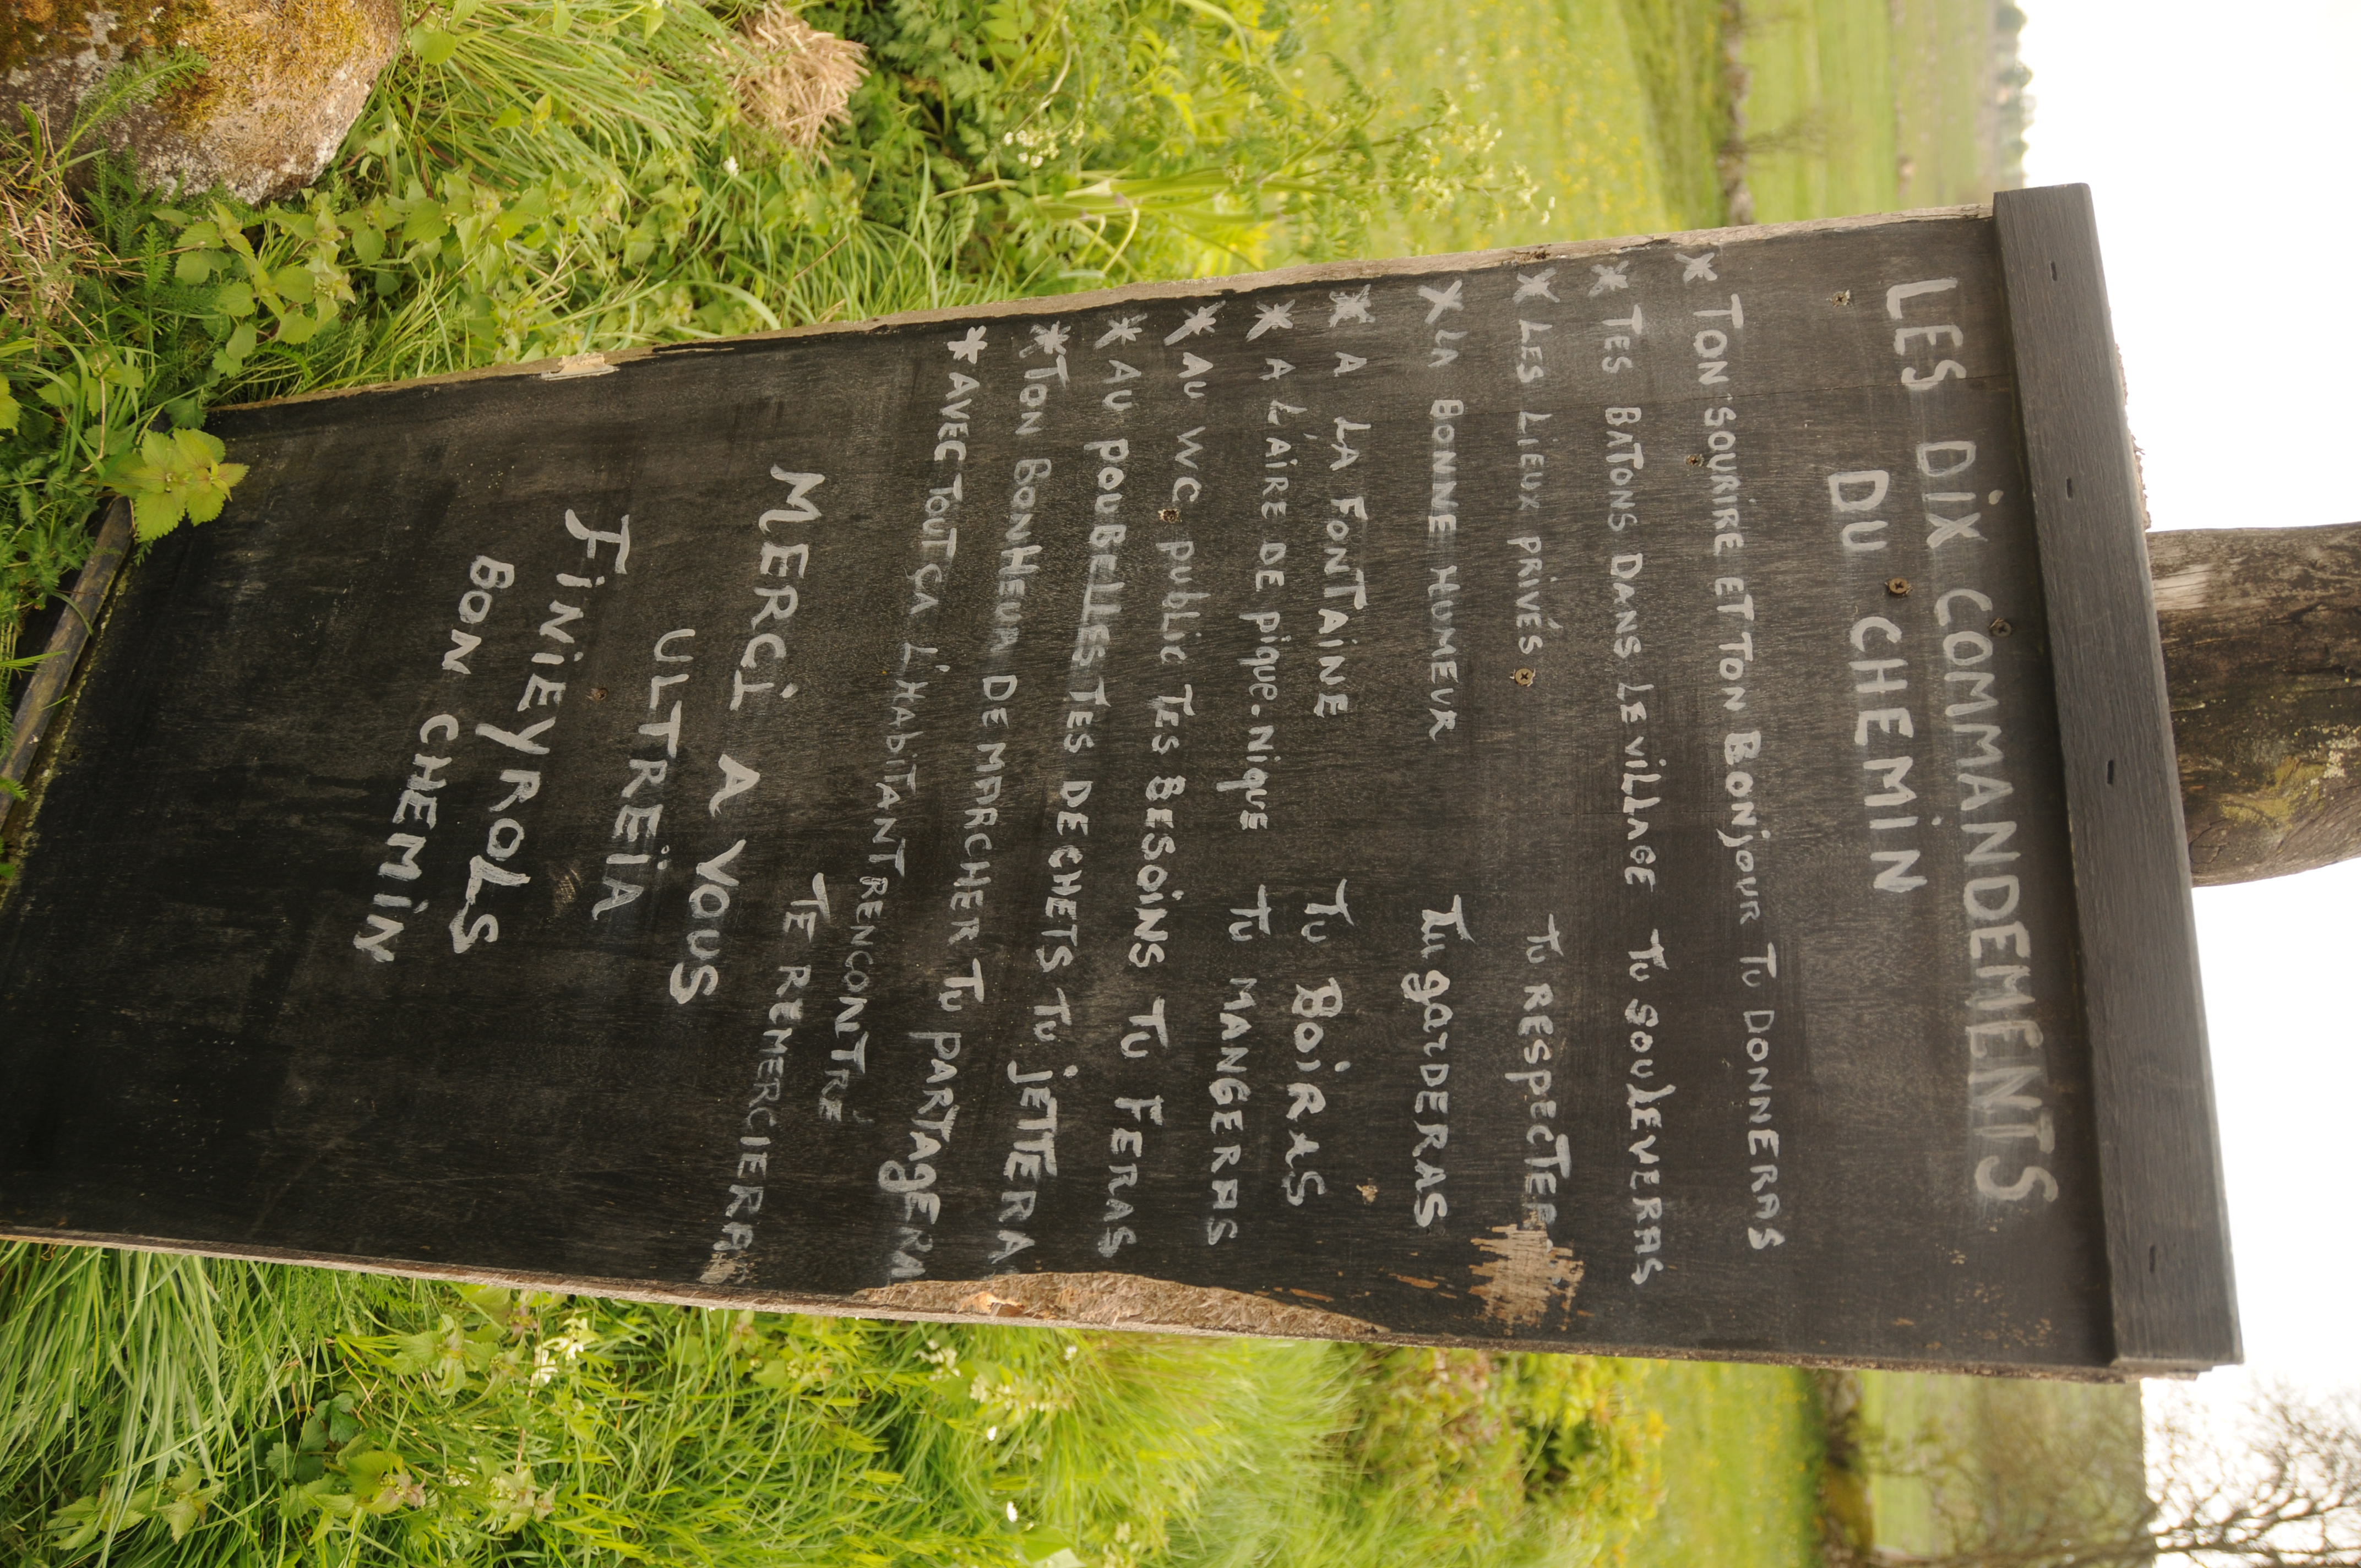 LES DIX COMMANDEMENTS
DU CHEMIN
* TON SOURIRE ET TON BONJOUR TU DONNERAS
* TES BATONS DANS LE VILLAGE TU SOULEVERAS
* LES LIEUX PRIVÉS TU RESPECTER
* LA BONNE HUMEUR TU GARDERAS
* A LA FONTAINE TU BOIRAS
* A L'AIRE DE PIQUE-NIQUE TU MANGERAS
* AU WC PUBLIC TES BESOINS TU FERAS
* AU POUBELLES TES DECHETS TU JETTERA
* TON BONHEUR DE MARCHER TU PARTAGERA
* AVEC TOUT ÇA L'HABITANT RENCONTRÉ
TE REMERCIERA
MERCI A VOUS
ULTREÏA
FINIEYROLS
BON CHEMIN